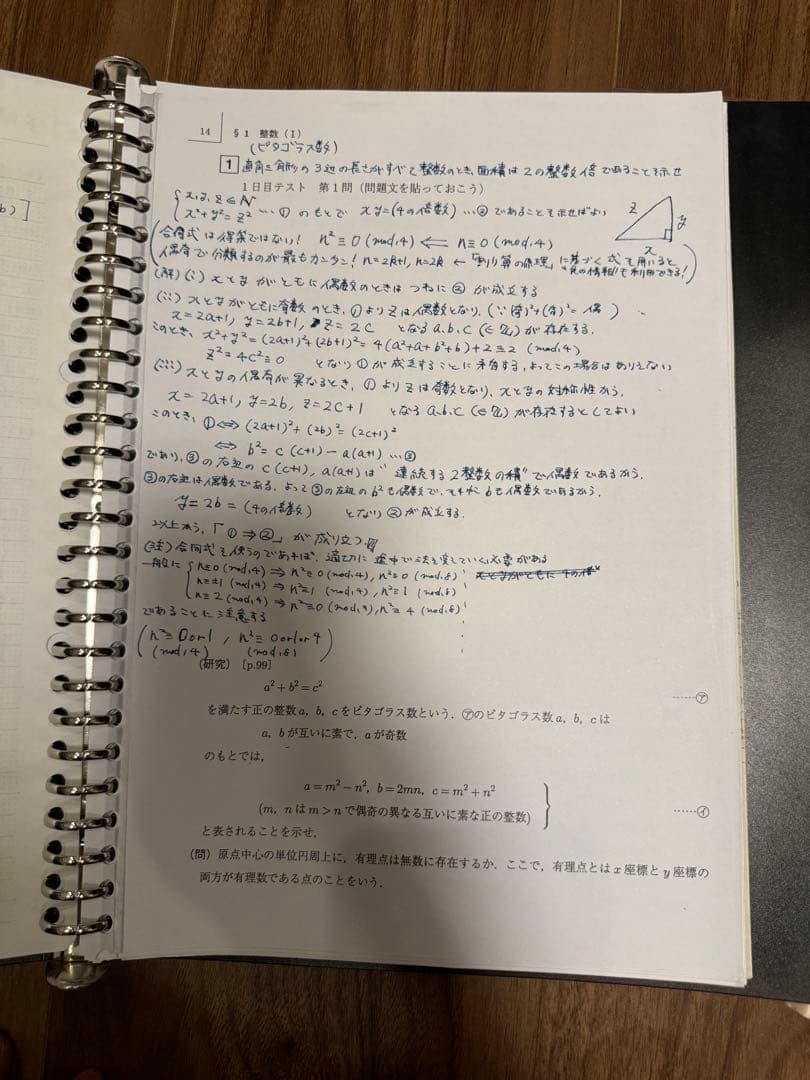 14 §1 整数(I)
(ピタゴラス数)
1 直角三角形の3辺の長さがすべて整数のとき,面積は2の整数倍であることを示せ
1日目テスト 第1問(問題文を貼っておこう)
x, y, z ∈ N
x²+y²=z² …① のもとで xy=(4の倍数) …② であることを示せばよい
z
y
x
合同式は得策ではない! n²≡0 (mod,4) ⟸ n≡0 (mod,4)
偶奇で分類するのが最もカンタン! n=2k+1, n=2k ← 「割り算の原理」に基づく式を用いると
"商の情報"も利用できる!
(解)(i) xとyがともに偶数のときはつねに②が成立する
(ii) xとyがともに奇数のとき,①よりzは偶数となり,(∵(奇)²+(奇)²=偶)
x=2a+1, y=2b+1, z=2c となるa,b,c(∈Z)が存在する.
このとき, x²+y²=(2a+1)²+(2b+1)²=4(a²+a+b²+b)+2≡2 (mod,4)
z²=4c²≡0 となり①が成立することに矛盾する,よってこの場合はありえない
(iii) xとyの偶奇が異なるとき,①よりzは奇数となり,xとyの対称性から.
x=2a+1, y=2b, z=2c+1 となるa,b,c(∈Z)が存在するとしてよい
このとき, ①⟺ (2a+1)²+(2b)²=(2c+1)²
⟺ b²=c(c+1)-a(a+1) …③
であり,③の右辺のc(c+1), a(a+1)は"連続する2整数の積"で偶数であるから.
③の右辺は偶数である.よって③の左辺のb²も偶数で,それからbも偶数であるから.
y=2b=(4の倍数) となり②が成立する.
以上から,「①⇒②」が成り立つ
(注)合同式を使うのであれば,適切に途中で法を変えていく必要がある
一般に n≡0 (mod,4) ⇒ n²≡0 (mod,4), n²≡0 (mod,8)
n≡±1 (mod,4) ⇒ n²≡1 (mod,4), n²≡1 (mod,8)
n≡2 (mod,4) ⇒ n²≡0 (mod,4), n²≡4 (mod,8)
であることに注意する
(n²≡0 or 1, n²≡0 or 1 or 4)
(mod,4) (mod,8)
(研究) [p.99]
a²+b²=c² ……㋐
を満たす正の整数a, b, cをピタゴラス数という.㋐のピタゴラス数a, b, cは
a, bが互いに素で,aが奇数
のもとでは,
a=m²-n², b=2mn, c=m²+n²
(m, nはm>nで偶奇の異なる互いに素な正の整数) ……㋑
と表されることを示せ.
(問)原点中心の単位円周上に,有理点は無数に存在するか.ここで,有理点とはx座標とy座標の
両方が有理数である点のことをいう.